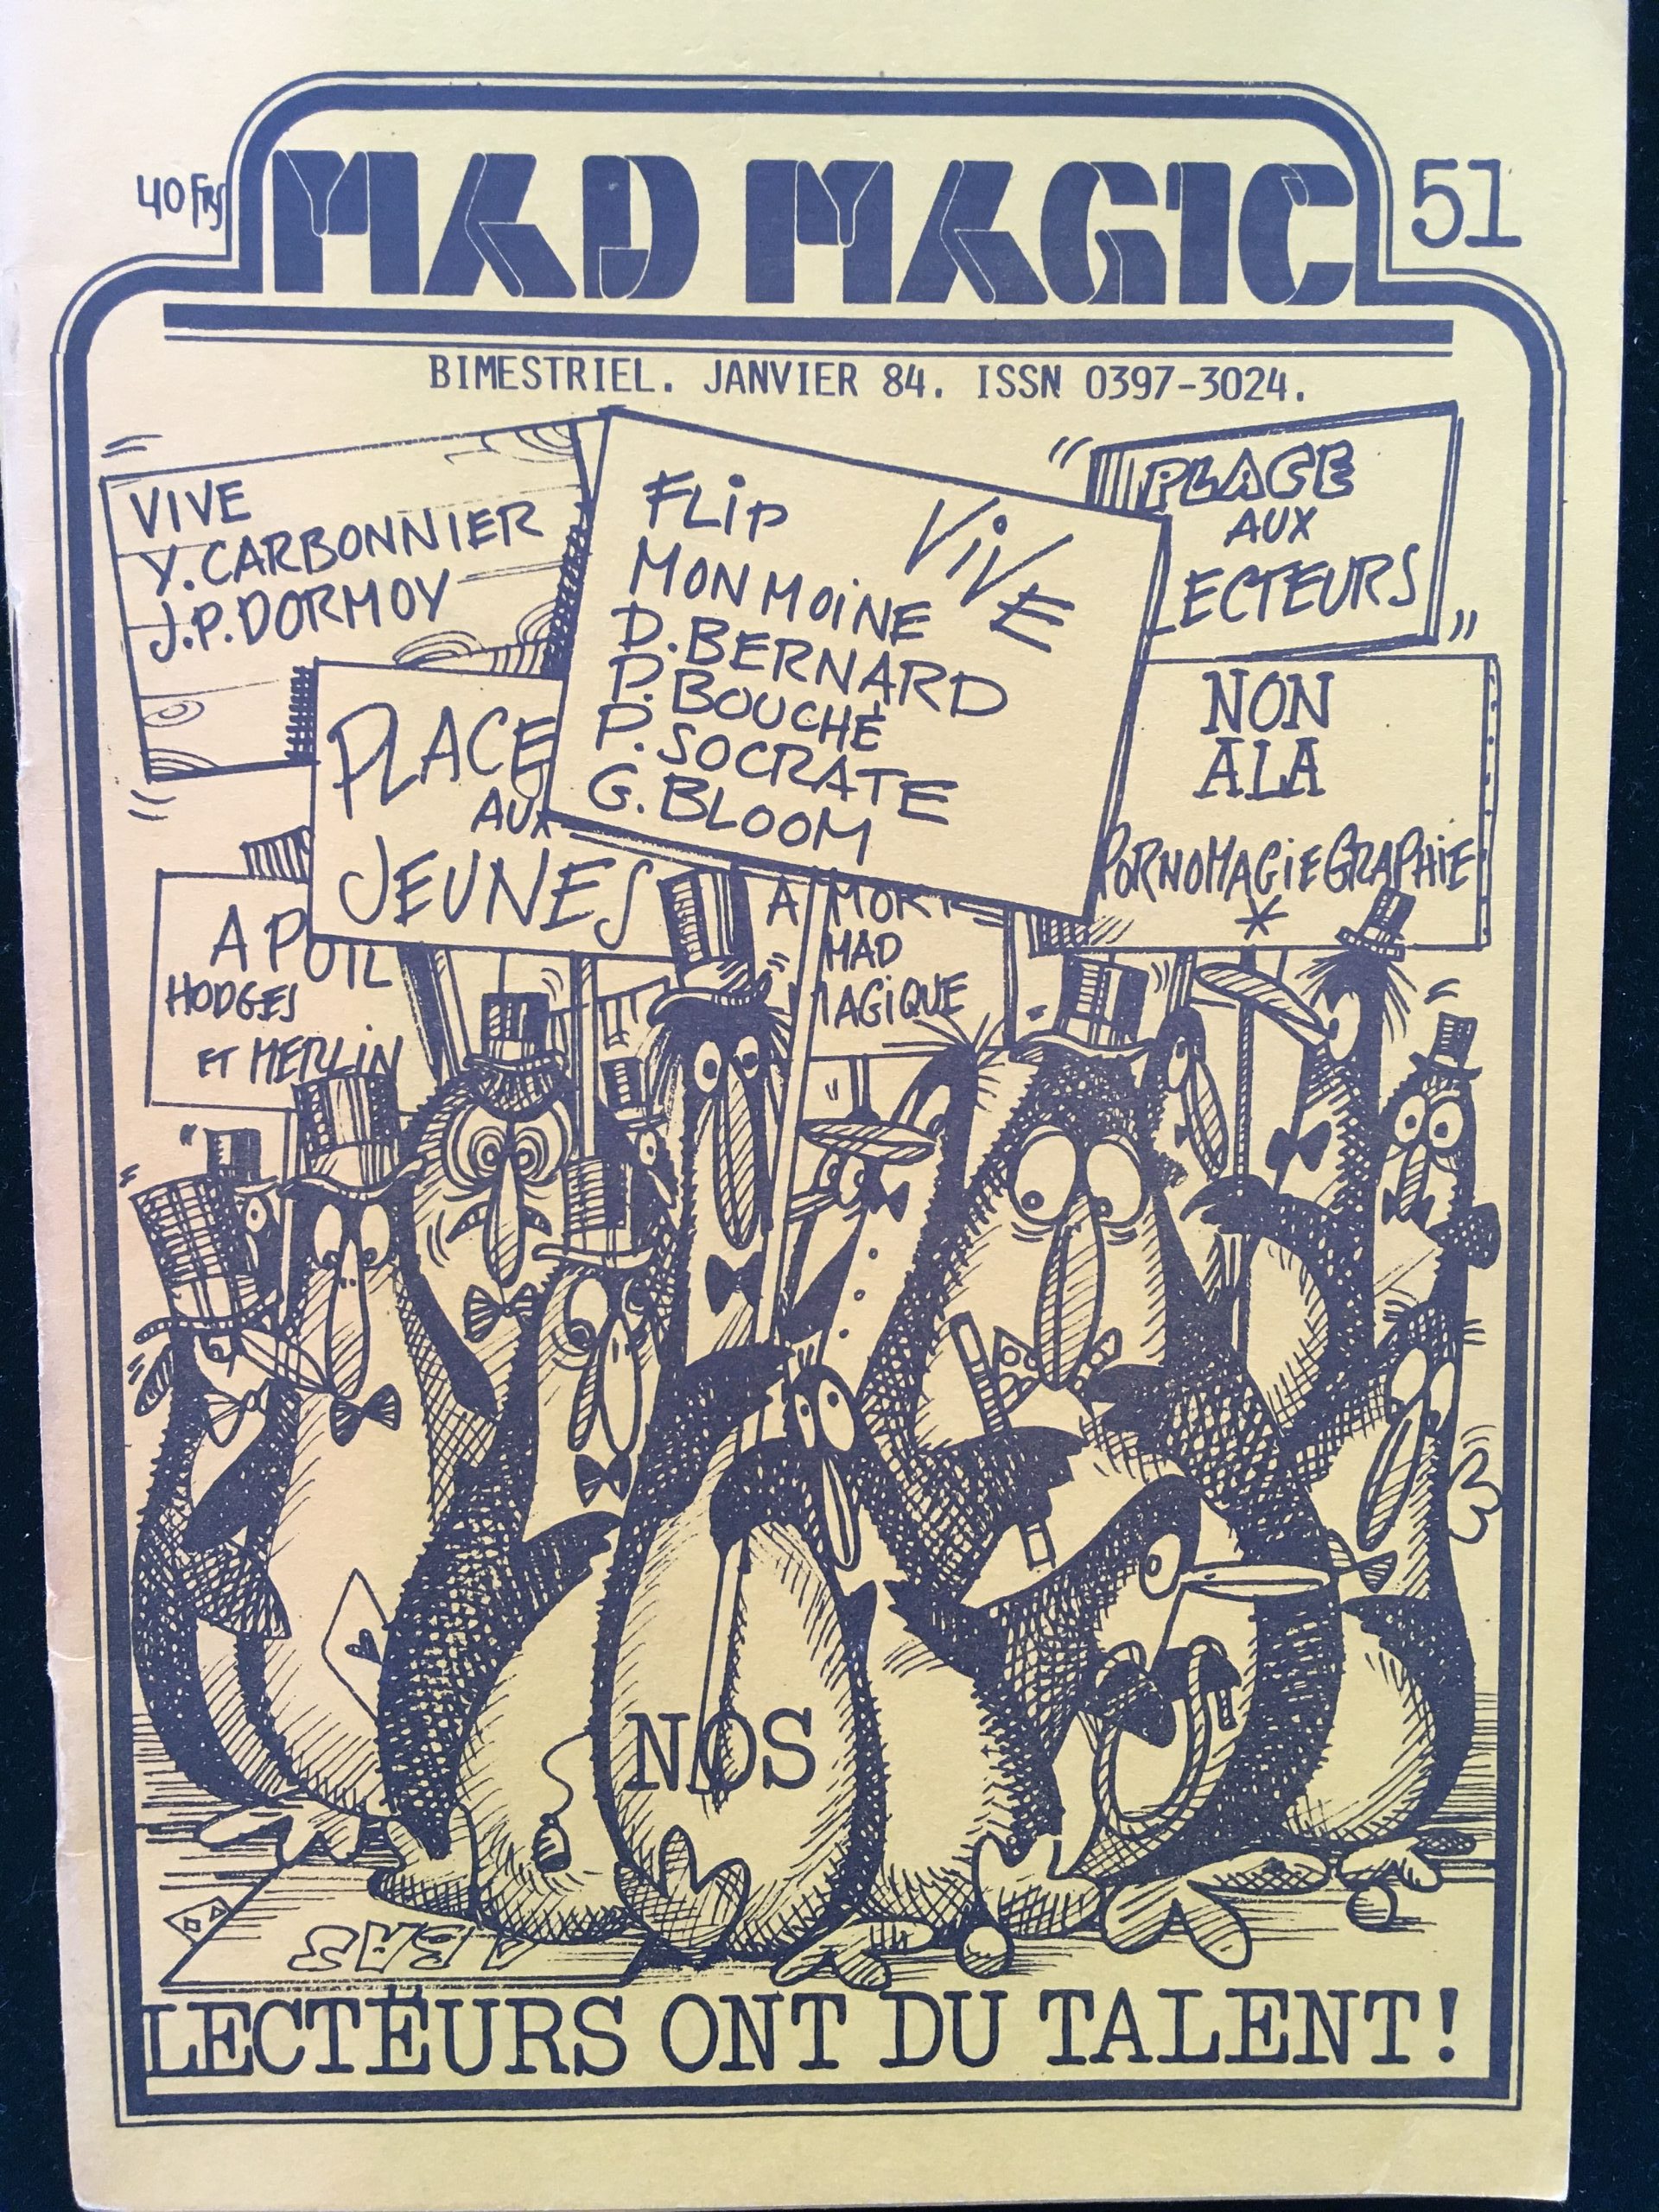 40 Frs
MAD MAGIC
51
BIMESTRIEL. JANVIER 84. ISSN 0397-3024.
VIVE
Y. CARBONNIER
J.P. DORMOY
VIVE
FLIP
MON MOINE
D. BERNARD
P. BOUCHÉ
P. SOCRATE
G. BLOOM
PLACE
AUX
LECTEURS
PLACE
AUX
JEUNES
NON
A LA
PORNOMAGIEGRAPHIE
*
A POIL
HODGES
ET MERLIN
A MORT
MAD
MAGIQUE
A BAS
NOS
LECTEURS ONT DU TALENT!